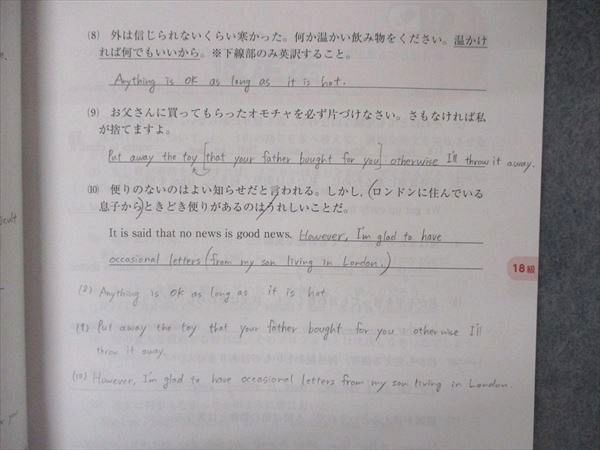 (8) 外は信じられないくらい寒かった。何か温かい飲み物をください。温かけ
れば何でもいいから。※下線部のみ英訳すること。
Anything is OK as long as it is hot.
(9) お父さんに買ってもらったオモチャを必ず片づけなさい。さもなければ私
が捨てますよ。
Put away the toy [that your father bought for you] otherwise I'll throw it away.
(10) 便りのないのはよい知らせだと言われる。しかし,(ロンドンに住んでいる
息子から)ときどき便りがあるのはうれしいことだ。
It is said that no news is good news. However, I'm glad to have
occasional letters (from my son living in London.)
18級
(8) Anything is OK as long as it is hot
(9) Put away the toy that your father bought for you otherwise I'll
throw it away.
(10) However, I'm glad to have occasional letters from my son living in London.